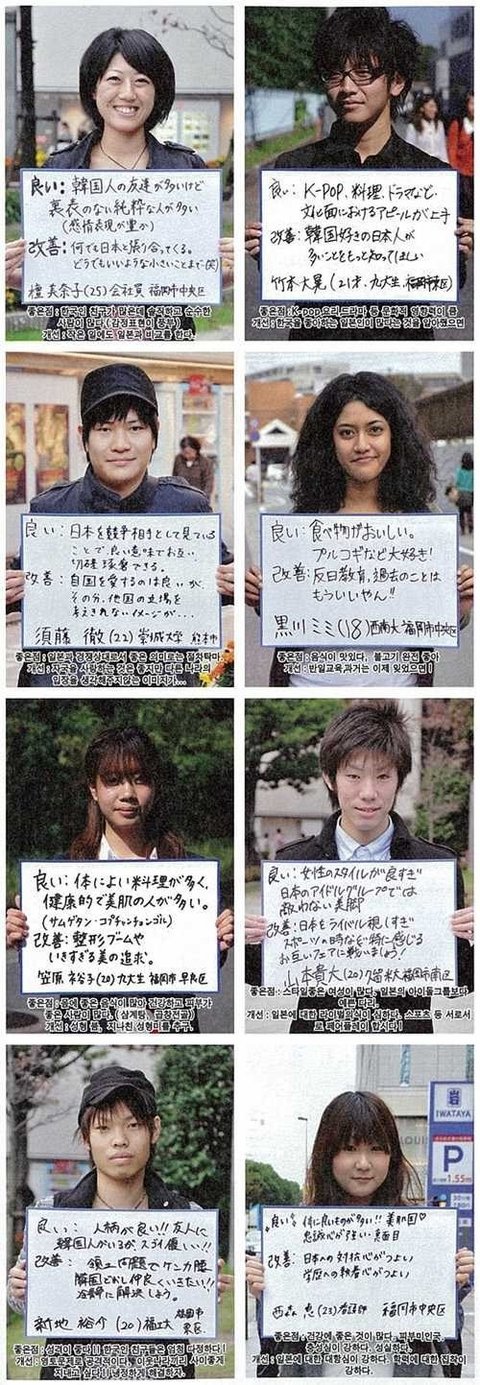 良い：韓国人の友達が多いけど
裏表のない純粋な人が多い
(感情表現が豊か)
改善：何でも日本と張り合ってくる。
どうでもいいような小さいことまで(笑)
檀 美奈子(25)会社員 福岡市中央区
좋은점 : 한국인 친구가 많은데 솔직하고 순수한
사람이 많다 (감정표현이 풍부)
개선 : 작은 일에도 일본과 비교를 한다.
良い：K-POP、料理、ドラマなど、
文化面におけるアピールが上手
改善：韓国好きの日本人が
多いことをもっと知ってほしい
竹本大晃(21才、九大生、福岡市東区)
좋은점 : K-pop,요리,드라마 등 문화적 영향력이 큼
개선 : 한국을 좋아하는 일본인이 많다는 것을 알아줬으면
良い：日本を競争相手として見ている
ことで良い意味でお互い
切磋琢磨できる。
改善：自国を愛するのは良いが、
その分、他国の立場を
考えきれないイメージが・・・
須藤 徹(22)崇城大学 熊本市
좋은점 : 일본과 경쟁상대로서 좋은 의미로는 절차탁마
개선 : 자국을 사랑하는 것은 좋지마 다른 나라의
입장을 생각해주지않는 이미지가...
良い：食べ物がおいしい。
プルコギなど大好き！
改善：反日教育、過去のことは
もういいやん!!
黒川ミミ(18)西南大 福岡市中央区
좋은점 : 음식이 맛있다, 불고기 완전 좋아
개선 : 반일교육,과거는 이제 잊었으면 !
良い：体によい料理が多く、
健康的で美肌の人が多い。
(サムゲタン・コプチャンチョンゴル)
改善：整形ブームや
いきすぎる美の追求。
笠原 裕子(20)九大生 福岡市早良区
좋은점 : 몸에 좋은 음식이 많아 건강하고 피부가
좋은 사람이 많다. ( 삼계탕, 곱창전골)
개선 : 성형 붐, 지나친 성형미를 추구.
良い：女性のスタイルが良すぎ
日本のアイドルグループでは
敵わない美脚
改善：日本をライバル視しすぎ
スポーツの時などで特に感じる
お互いフェアに戦いましょう！
山本貴大(20)久留米大 福岡市南区
좋은점 : 스타일좋은 여성이 많다. 일본의 아이돌그룹보다
예쁜 다리.
개선 : 일본에 대한 라이벌의식이 심하다. 스포츠 등 서로서
로 페어플레이 합시다 !
良い：人柄が良い!!友人に
韓国人がいるが、スゴイ優しい!!
改善：領土問題でケンカ腰
隣国どおし仲良くいきたい!!
冷静に解決しよう。
新地 裕介(20)福工大 福岡市
東区
좋은점 : 성격이 좋다 !! 한국인 친구들은 엄청 다정하다 !
개선 : 영토문제로 공격적이다. 이웃나라끼리 사이좋게
지내고 싶다 !! 냉정하게 해결하자.
IWATAYA
P
1.55m
良い：体に良いものが多い!! 美肌国♡
忠誠心が強い・真面目
改善：日本への対抗心がつよい
学歴への執着心がつよい
西森 恵(23)看護師 福岡市中央区
좋은점 : 건강에 좋은 것이 많다. 피부미인국.
충성심이 강하다. 성실하다.
개선 : 일본에 대한 대항심이 강하다. 학력에 대한 집착이
강하다.